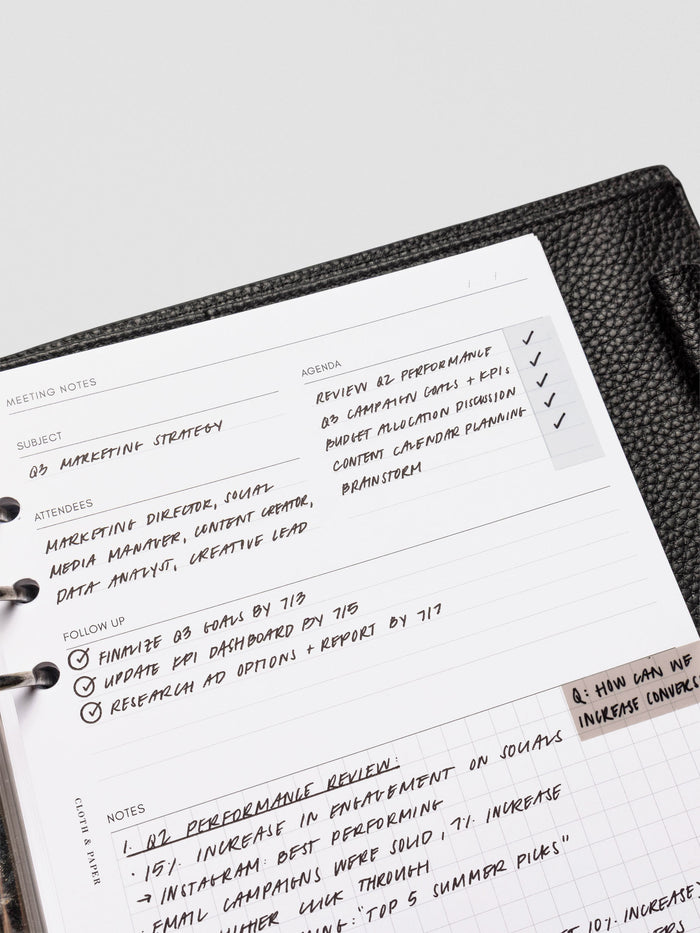 / /
MEETING NOTES
SUBJECT
Q3 MARKETING STRATEGY
AGENDA
REVIEW Q2 PERFORMANCE ✓
Q3 CAMPAIGN GOALS + KPIs ✓
BUDGET ALLOCATION DISCUSSION ✓
CONTENT CALENDAR PLANNING ✓
BRAINSTORM ✓
ATTENDEES
MARKETING DIRECTOR, SOCIAL
MEDIA MANAGER, CONTENT CREATOR,
DATA ANALYST, CREATIVE LEAD
FOLLOW UP
FINALIZE Q3 GOALS BY 7/3
UPDATE KPI DASHBOARD BY 7/5
RESEARCH AD OPTIONS + REPORT BY 7/7
Q: HOW CAN WE
INCREASE
NOTES
1. Q2 PERFORMANCE REVIEW:
· 15% INCREASE IN ENGAGEMENT ON SOCIALS
→ INSTAGRAM: BEST PERFORMING
· EMAIL CAMPAIGNS WERE SOLID, 7% INCREASE
HIGHER CLICK THROUGH
: "TOP 5 SUMMER PICKS"
10% INCREASE
CLOTH & PAPER